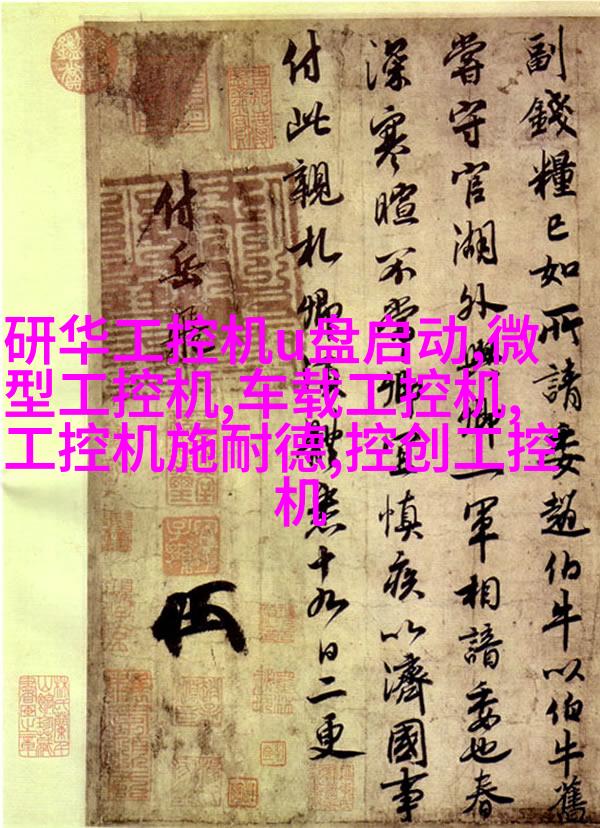 研华工控机u盘启动,微
型工控机,车载工控机,
工控机施耐德,控创工控
机
副錢糧已如所請委趙伯牛以伯牛舊
嘗守官湖外與卿一軍相諳委也春
深寒暄不常卿宜慎疾以濟國事
付此親札卿須體悉十九日二更
付岳飛